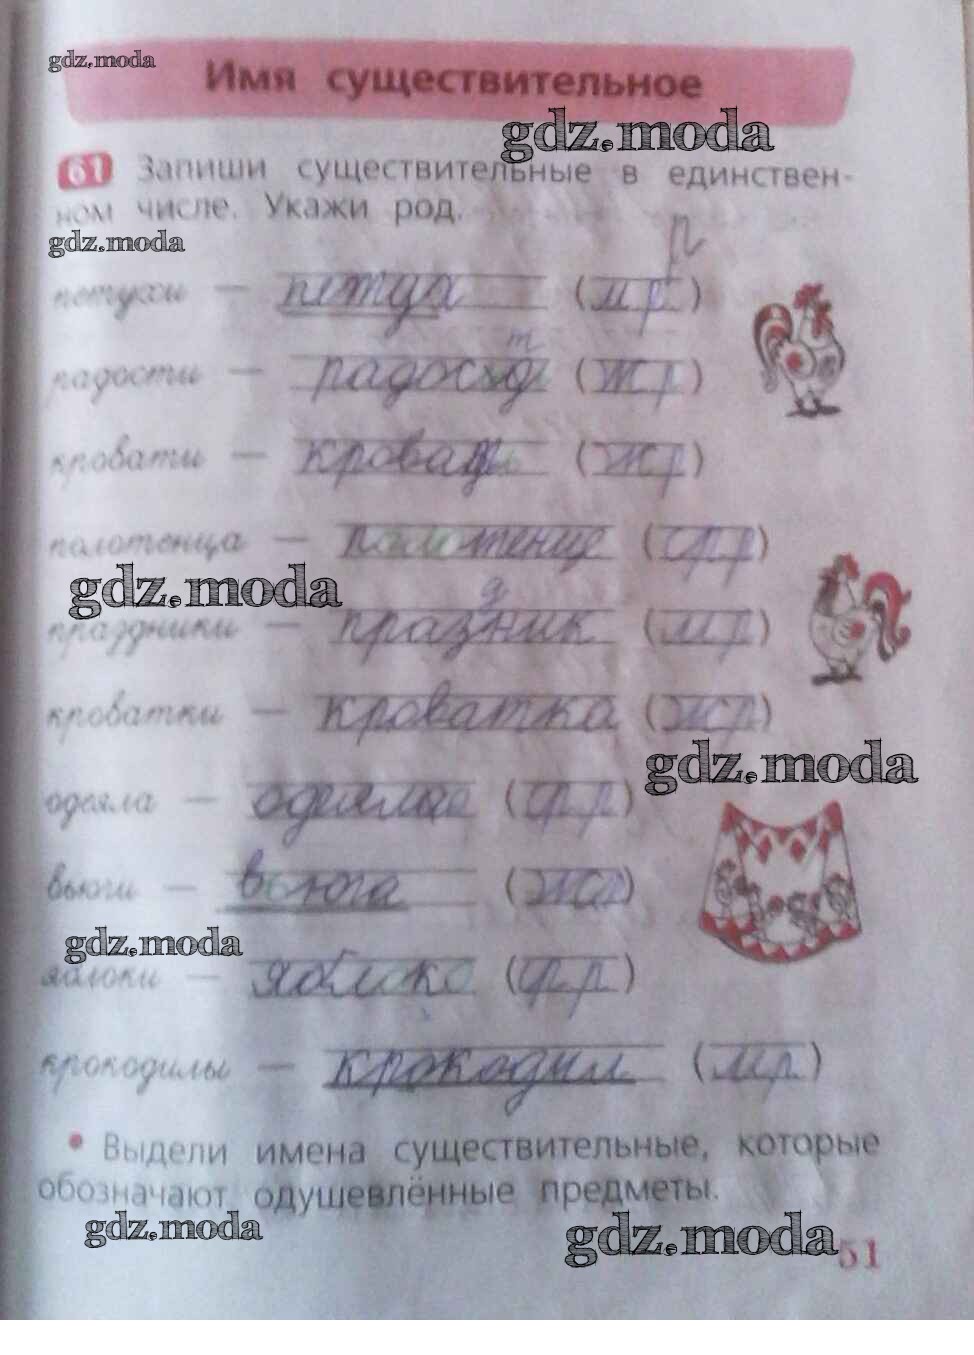 gdz.moda
Имя существительное
gdz.moda
61 Запиши существительные в единствен-
ном числе. Укажи род.
gdz.moda
п
петухи — петух (м р)
т
радости — радость (ж р)
кровати — кровать (ж р)
полотенца — полотенце (ср р)
gdz.moda
д
праздники — празник (м р)
кроватки — кроватка (ж р)
gdz.moda
одеяла — одеяло (ср р)
вьюги — вьюга (ж р)
gdz.moda
яблоки — яблоко (ср р)
крокодилы — крокодил (м р)
• Выдели имена существительные, которые
обозначают одушевлённые предметы.
gdz.moda
gdz.moda
51